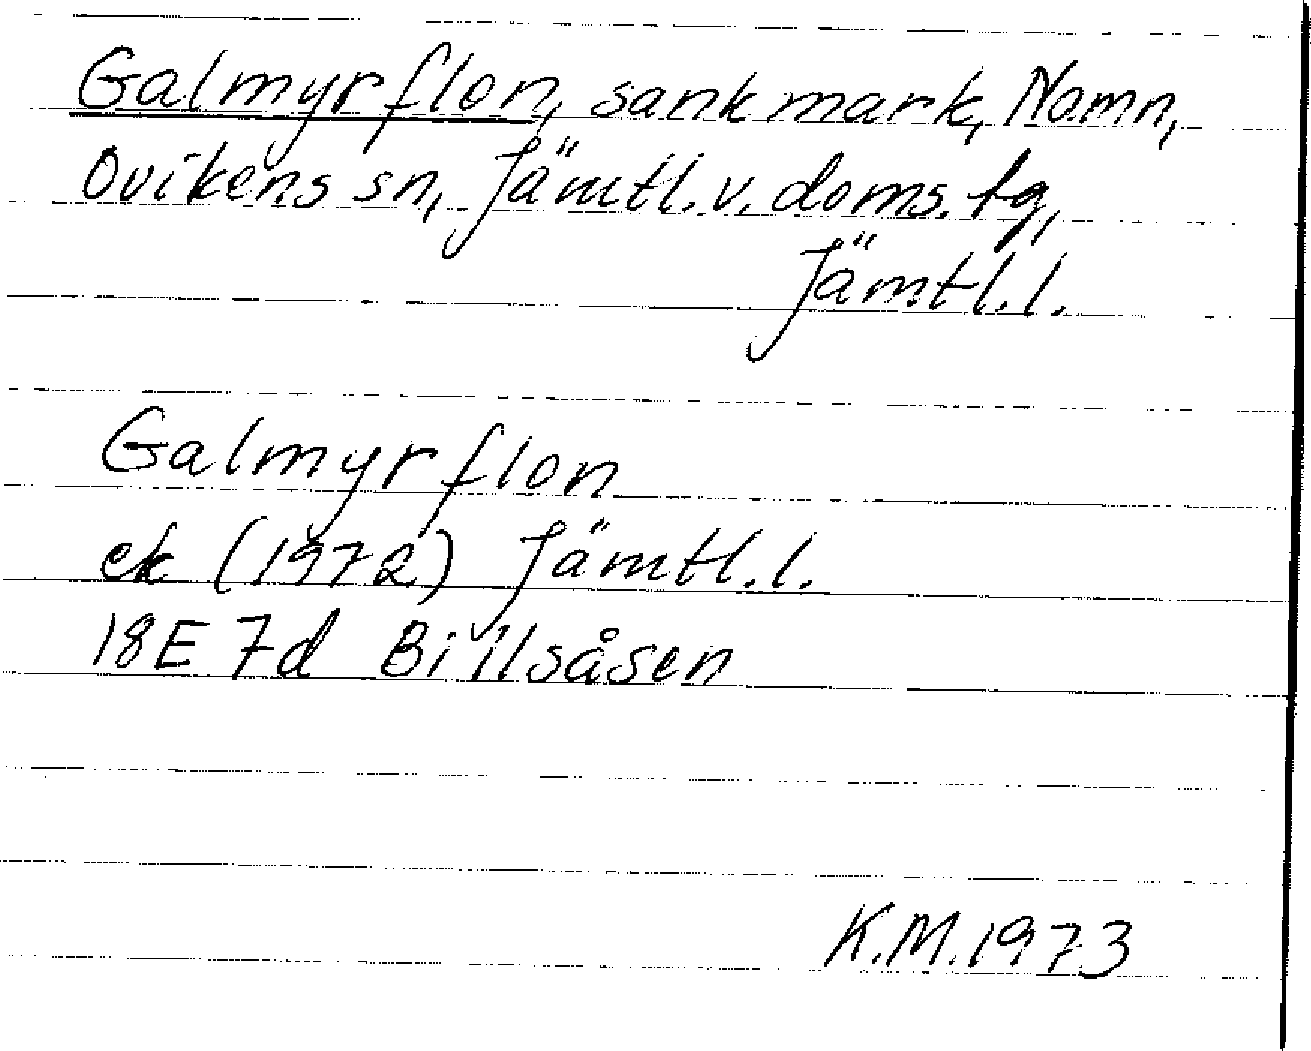 Galmyrflon, sankmark, Namn,
Ovikens sn, Jämtl. v. doms. tg,
Jämtl. l.
Galmyrflon
ek (1972) Jämtl. l.
18E 7d Billsåsen
K.M. 1973